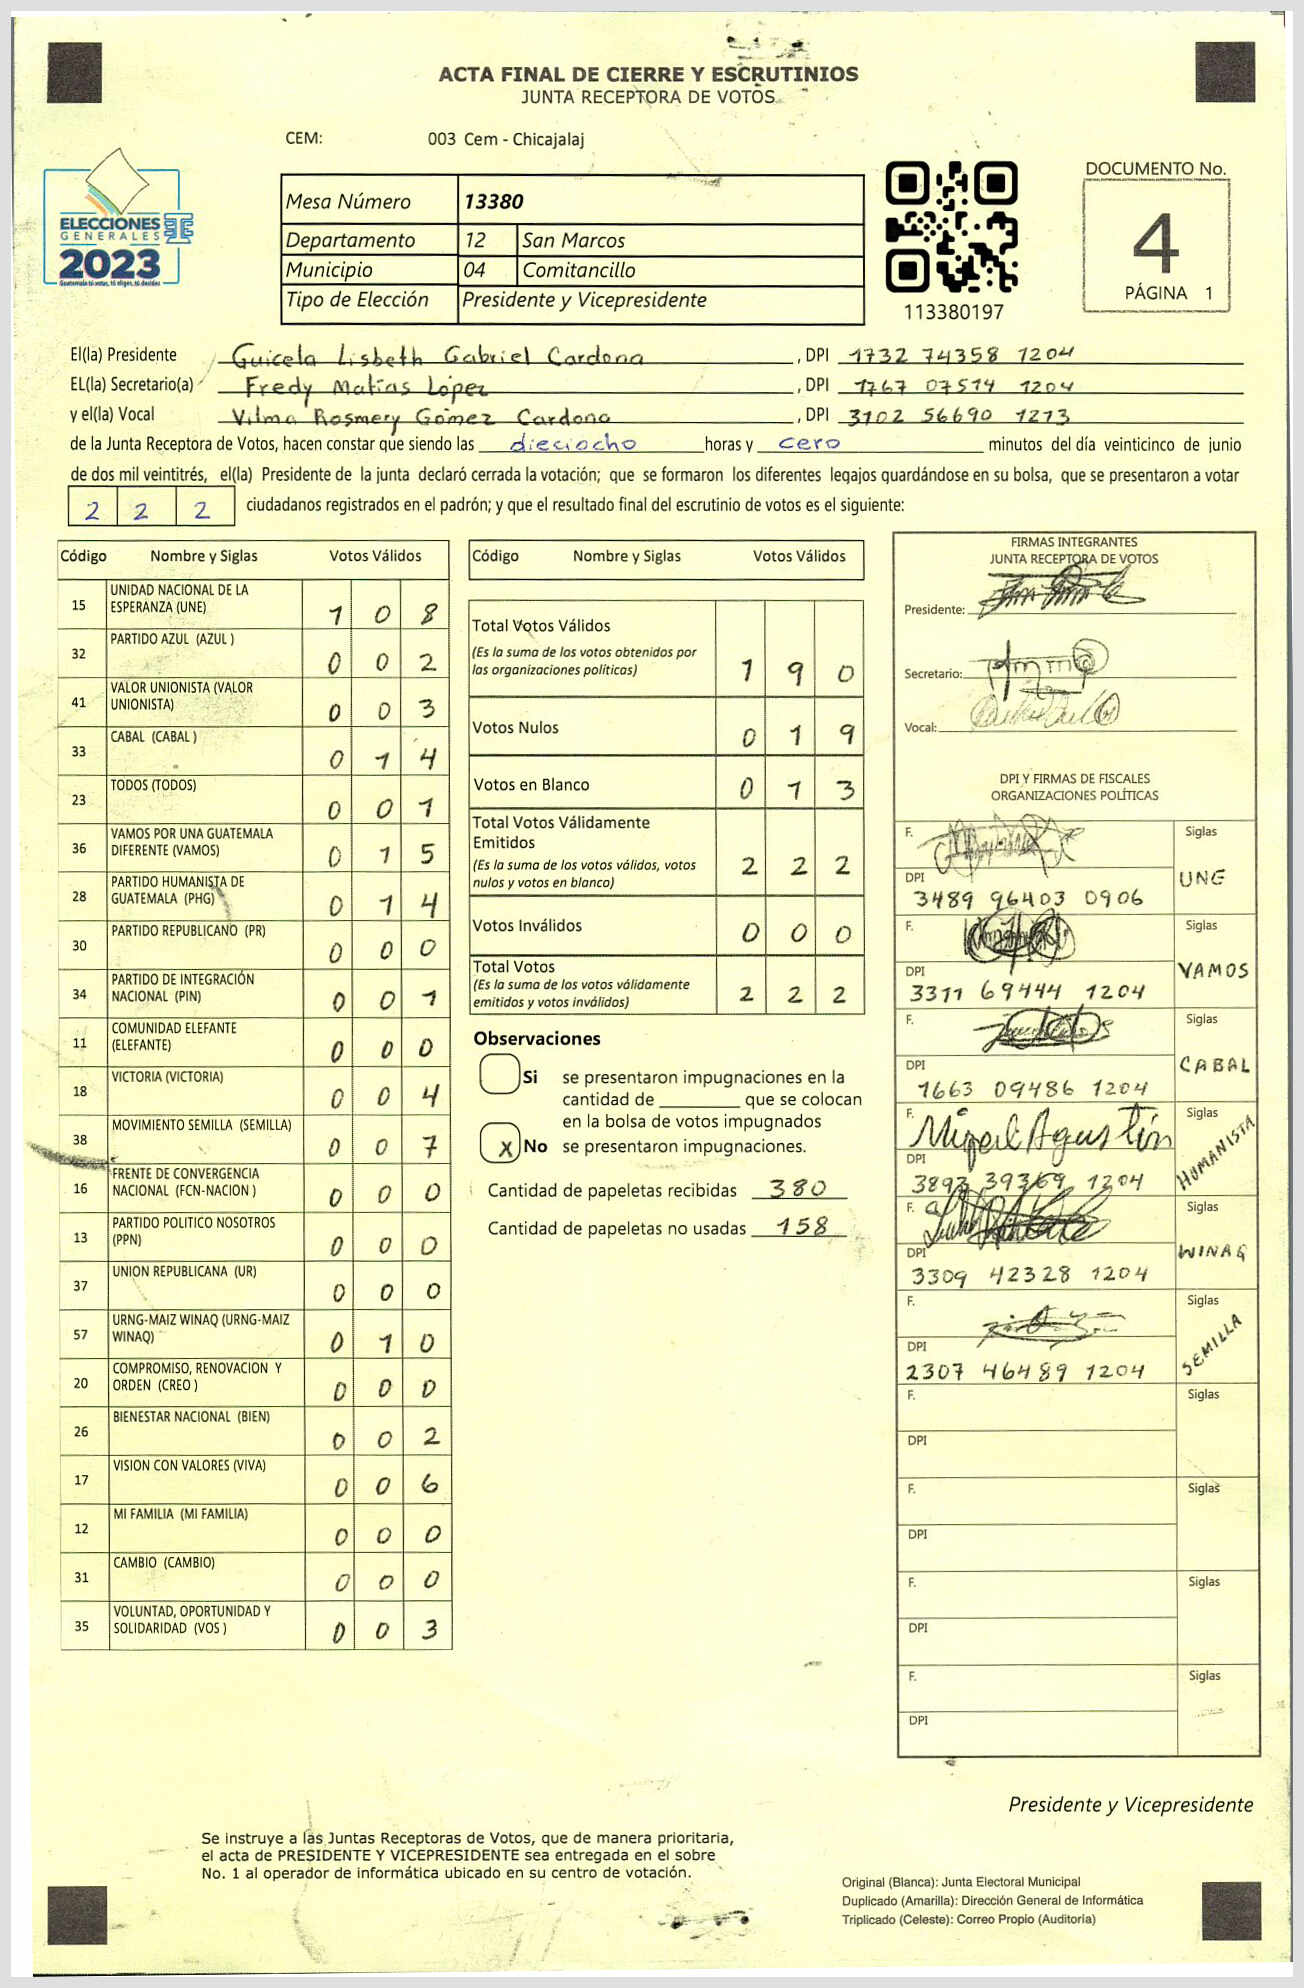 ACTA FINAL DE CIERRE Y ESCRUTINIOS
JUNTA RECEPTORA DE VOTOS
CEM: 003 Cem - Chicajalaj
ELECCIONES
GENERALES
2023
Guatemala tú votas, tú eliges, tú decides
Mesa Número 13380
Departamento 12 San Marcos
Municipio 04 Comitancillo
Tipo de Elección Presidente y Vicepresidente
113380197
DOCUMENTO No.
4
PÁGINA 1
El(la) Presidente Guicela Lisbeth Gabriel Cardona, DPI 1732 74358 1204
EL(la) Secretario(a) Fredy Matías López, DPI 1767 07514 1204
y el(la) Vocal Vilma Rosmery Gómez Cardona, DPI 3102 56690 1213
de la Junta Receptora de Votos, hacen constar que siendo las dieciocho horas y cero minutos del día veinticinco de junio
de dos mil veintitrés, el(la) Presidente de la junta declaró cerrada la votación; que se formaron los diferentes legajos guardándose en su bolsa, que se presentaron a votar
2 2 2 ciudadanos registrados en el padrón; y que el resultado final del escrutinio de votos es el siguiente:
Código Nombre y Siglas Votos Válidos
15 UNIDAD NACIONAL DE LA ESPERANZA (UNE) 1 0 8
32 PARTIDO AZUL (AZUL ) 0 0 2
41 VALOR UNIONISTA (VALOR UNIONISTA) 0 0 3
33 CABAL (CABAL ) 0 1 4
23 TODOS (TODOS) 0 0 1
36 VAMOS POR UNA GUATEMALA DIFERENTE (VAMOS) 0 1 5
28 PARTIDO HUMANISTA DE GUATEMALA (PHG) 0 1 4
30 PARTIDO REPUBLICANO (PR) 0 0 0
34 PARTIDO DE INTEGRACIÓN NACIONAL (PIN) 0 0 1
11 COMUNIDAD ELEFANTE (ELEFANTE) 0 0 0
18 VICTORIA (VICTORIA) 0 0 4
38 MOVIMIENTO SEMILLA (SEMILLA) 0 0 7
16 FRENTE DE CONVERGENCIA NACIONAL (FCN-NACION ) 0 0 0
13 PARTIDO POLITICO NOSOTROS (PPN) 0 0 0
37 UNION REPUBLICANA (UR) 0 0 0
57 URNG-MAIZ WINAQ (URNG-MAIZ WINAQ) 0 1 0
20 COMPROMISO, RENOVACION Y ORDEN (CREO ) 0 0 0
26 BIENESTAR NACIONAL (BIEN) 0 0 2
17 VISION CON VALORES (VIVA) 0 0 6
12 MI FAMILIA (MI FAMILIA) 0 0 0
31 CAMBIO (CAMBIO) 0 0 0
35 VOLUNTAD, OPORTUNIDAD Y SOLIDARIDAD (VOS ) 0 0 3
Código Nombre y Siglas Votos Válidos
Total Votos Válidos
(Es la suma de los votos obtenidos por
las organizaciones políticas) 1 9 0
Votos Nulos 0 1 9
Votos en Blanco 0 1 3
Total Votos Válidamente
Emitidos
(Es la suma de los votos válidos, votos
nulos y votos en blanco) 2 2 2
Votos Inválidos 0 0 0
Total Votos
(Es la suma de los votos válidamente
emitidos y votos inválidos) 2 2 2
Observaciones
Si se presentaron impugnaciones en la
cantidad de ________ que se colocan
en la bolsa de votos impugnados
X No se presentaron impugnaciones.
Cantidad de papeletas recibidas 380
Cantidad de papeletas no usadas 158
FIRMAS INTEGRANTES
JUNTA RECEPTORA DE VOTOS
Presidente:
Secretario:
Vocal:
DPI Y FIRMAS DE FISCALES
ORGANIZACIONES POLÍTICAS
F. Siglas
DPI UNE
3489 96403 0906
F. Siglas
DPI VAMOS
3311 69444 1204
F. Siglas
DPI CABAL
1663 09486 1204
F. Miguel Agustín Siglas
DPI HUMANISTA
3893 39369 1204
F. Siglas
DPI WINAQ
3309 42328 1204
F. Siglas
DPI SEMILLA
2307 46489 1204
F. Siglas
DPI
F. Siglas
DPI
F. Siglas
DPI
F. Siglas
DPI
Presidente y Vicepresidente
Se instruye a las Juntas Receptoras de Votos, que de manera prioritaria,
el acta de PRESIDENTE Y VICEPRESIDENTE sea entregada en el sobre
No. 1 al operador de informática ubicado en su centro de votación.
Original (Blanca): Junta Electoral Municipal
Duplicado (Amarilla): Dirección General de Informática
Triplicado (Celeste): Correo Propio (Auditoría)